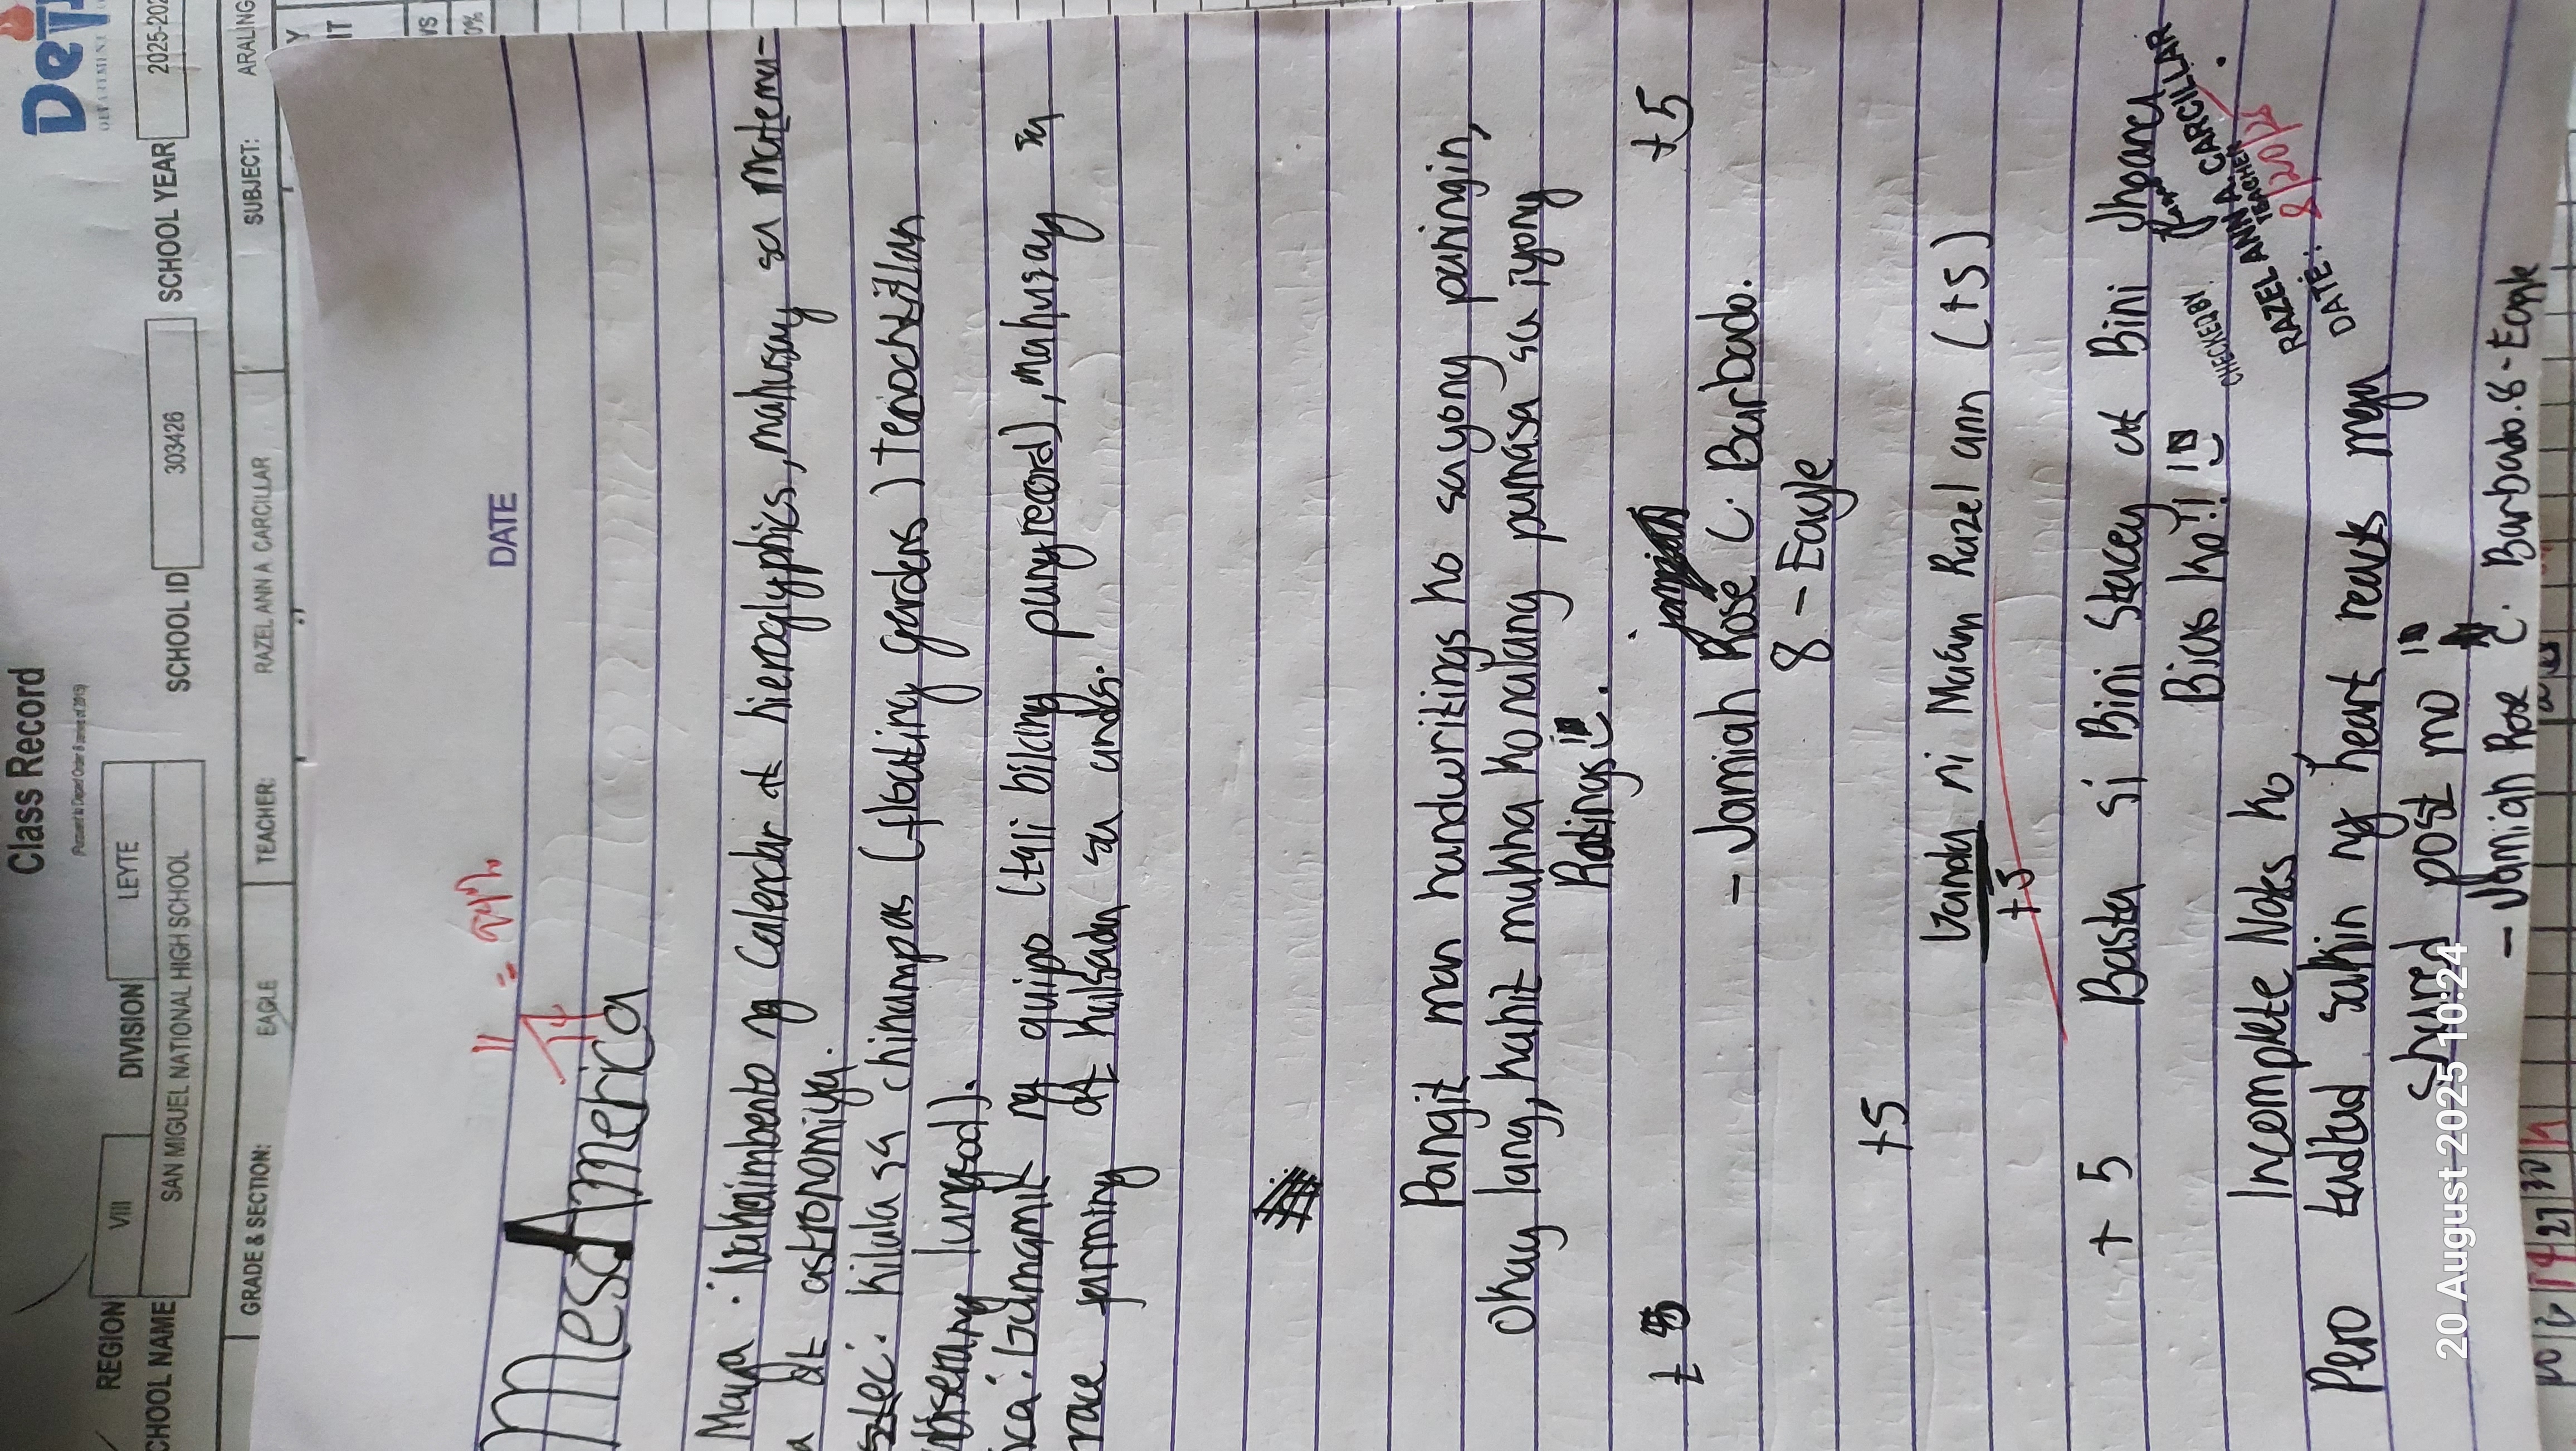 Class Record
(Pursuant to DepEd Order 8 series of 2015)
DepE
DEPARTMENT O
REGION VIII DIVISION LEYTE SCHOOL ID 303426 SCHOOL YEAR 2025-202
CHOOL NAME SAN MIGUEL NATIONAL HIGH SCHOOL
GRADE & SECTION: EAGLE TEACHER: RAZEL ANN A CARCILLAR SUBJECT: ARALING
DATE
MesoAmerica
Maya : Nakaimbento ng Calendar at hieroglyphics, mahusay sa Matema-
a at astronomiya.
ztec: kilala sa chinampas (floating gardens) Tenochtitlan
ica: Gumagamit ng quipo (tali bilang pangrecord), mahusay
race farming at kalsada sa andes.
Pangit man handwritings ko sayong paningin,
Okay lang, kahit mukha ko nalang pumasa sa iyong
Ratings!!
+5
+5
- Jamiah Rose C. Barbado.
8 - Eagle
+5
Ganda ni Ma'am Razel ann (+5)
+5
+5 Basta si Bini Stacey at Bini Jhoanna
Bias ko!!
CHECKED BY:
RAZEL ANN A. CARCILLAR
TEACHER
DATE: 8/20/25
Incomplete Notes ko,
Pero tadtad sakin ng heart reacts mga
Shared post mo
- Jamiah Rose C. Barbado. 8-Eagle
20 August 2025 10:24